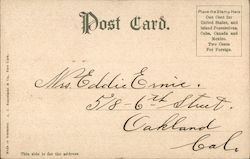 Post Card.
Place the Stamp Here
One Cent for
United States, and
Island Possessions,
Cuba, Canada and
Mexico.
Two Cents
For Foreign.
Mrs. Eddie Ernie.
518-6th Street.
Oakland
Cal.
This side is for the address.